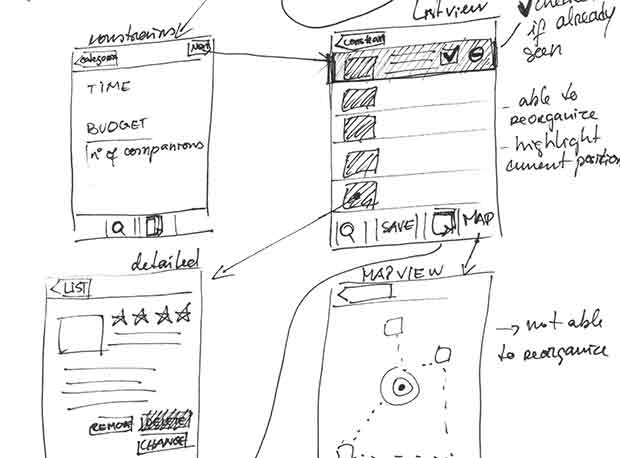 constrains
<categories
Next
TIME
BUDGET
n° of companions
List view
<constrain
if already
seen
- able to
reorganize
- highlight
current position
SAVE
MAP
detailed
<LIST
REMOVE
DELETE
CHANGE
MAPVIEW
→ not able
to reorganize